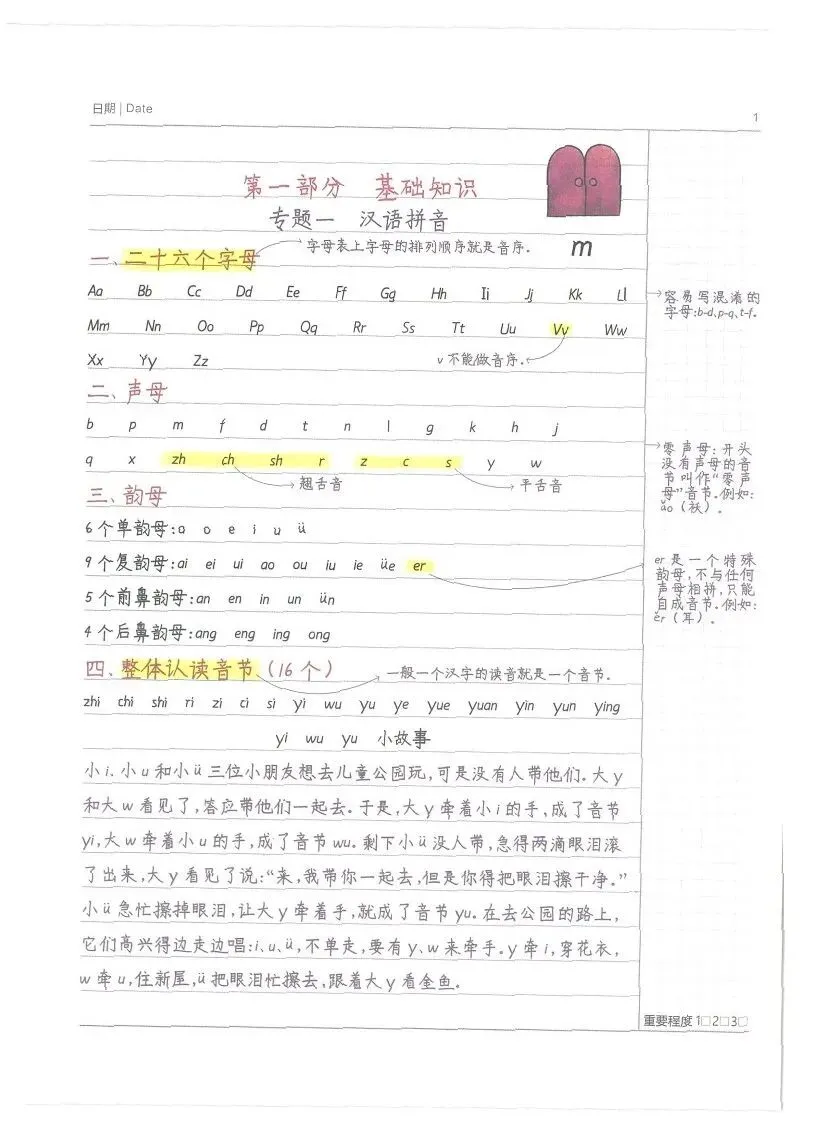 日期 | Date
1
第一部分 基础知识
专题一 汉语拼音
字母表上字母的排列顺序就是音序.
m
一、二十六个字母
Aa Bb Cc Dd Ee Ff Gg Hh Ii Jj Kk Ll
Mm Nn Oo Pp Qq Rr Ss Tt Uu Vv Ww
Xx Yy Zz
v不能做音序.
容易写混淆的
字母:b-d、p-q、t-f.
二、声母
b p m f d t n l g k h j
q x zh ch sh r z c s y w
翘舌音
平舌音
零声母:开头
没有声母的音
节叫作“零声
母”音节.例如:
ǎo(袄).
三、韵母
6个单韵母:a o e i u ü
9个复韵母:ai ei ui ao ou iu ie üe er
5个前鼻韵母:an en in un ün
4个后鼻韵母:ang eng ing ong
er是一个特殊
韵母,不与任何
声母相拼,只能
自成音节.例如:
ěr(耳).
四、整体认读音节(16个)
一般一个汉字的读音就是一个音节.
zhi chi shi ri zi ci si yi wu yu ye yue yuan yin yun ying
yi wu yu 小故事
小i、小u和小ü三位小朋友想去儿童公园玩,可是没有人带他们.大y
和大w看见了,答应带他们一起去.于是,大y牵着小i的手,成了音节
yi,大w牵着小u的手,成了音节wu.剩下小ü没人带,急得两滴眼泪滚
了出来,大y看见了说:“来,我带你一起去,但是你得把眼泪擦干净.”
小ü急忙擦掉眼泪,让大y牵着手,就成了音节yu.在去公园的路上,
它们高兴得边走边唱:i、u、ü,不单走,要有y、w来牵手.y牵i,穿花衣,
w牵u,住新屋,ü把眼泪忙擦去,跟着大y看金鱼.
重要程度 1□2□3□